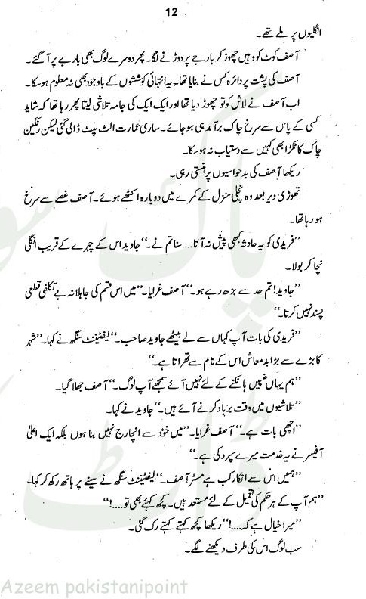 12
انگلیوں پر ملے تھے۔
آصف کوٹ کو وہیں چھوڑ کر بارجے پر دوڑنے لگا۔ پھر دوسرے لوگ بھی بارجے پر آ گئے۔
آصف کی پشت پر دائرہ کس نے بنایا تھا۔ یہ انتہائی کوششوں کے باوجود بھی نہ معلوم ہو سکا۔
اب آصف نے لاش کو تو چھوڑ دیا تھا اور ایک ایک کی جامہ تلاشی لیتا پھر رہا تھا کہ شاید
کسی کے پاس سے سرخ چاک برآمد ہی ہو جائے۔ ساری عمارت الٹ پلٹ ڈالی گئی لیکن رنگین
چاک کا ٹکڑا بھی کہیں سے دستیاب نہ ہو سکا۔
ریکھا آصف کی بدحواسیوں پر ہنستی رہی۔
تھوڑی دیر بعد وہ نچلی منزل کے کمرے میں دوبارہ اکٹھے ہوئے۔ آصف غصے سے سرخ
ہو رہا تھا۔
”فریدی کو یہ حادثہ کبھی پیش نہ آتا۔ سنا تم نے۔“ جاوید اس کے چہرے کے قریب انگلی
نچا کر بولا۔
”جاوید! تم حد سے بڑھ رہے ہو۔“ آصف غرایا۔ ”میں اس قسم کی جاہلانہ بے تکلفی قطعی
پسند نہیں کرتا۔“
”فریدی کی بات آپ کہاں سے لے بیٹھے جاوید صاحب۔“ لیفٹیننٹ سنگھ نے کہا۔ ”شہر
کا بڑے سے بڑا بدمعاش اس کے نام سے تھراتا ہے۔“
”ہم یہاں غپیں ہانکنے کے لئے نہیں آئے سمجھے آپ لوگ۔“ آصف جھلا گیا۔
”تلاشیوں میں وقت برباد کرنے آئے ہیں۔“ جاوید نے کہا۔
”اچھی بات ہے۔“ آصف غرایا۔ ”میں خود سے انچارج نہیں بنا ہوں بلکہ ایک اعلیٰ
آفیسر نے یہ خدمت میرے سپرد کی ہے۔“
”ہمیں اس سے انکار کب ہے مسٹر آصف۔“ لیفٹیننٹ سنگھ نے سینے پر ہاتھ رکھ کر کہا۔
”ہم آپ کے ہر حکم کی تعمیل کے لئے مستعد ہیں۔ کچھ کہئے بھی تو....!“
”میرا خیال ہے کہ....!“ ریکھا کچھ کہتے کہتے رک گئی۔
سب لوگ اس کی طرف دیکھنے لگے۔
Azeem pakistanipoint